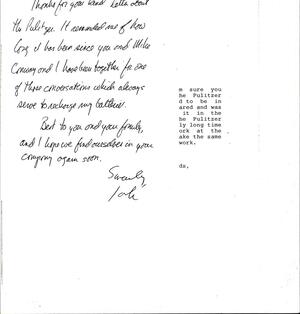 Thanks for your kind letter about
the Pulitzer. It reminded me of how
long it has been since you and Mike
and I have been together for one
of those conversations which always
serve to recharge my batteries.
Best to you and your family,
and I hope we find ourselves in your
company again soon.
Sincerely,
m sure you
he Pulitzer
d to be in
ared and was
it in the
he Pulitzer
ly long time
ork at the
ake the same
work.
ds,